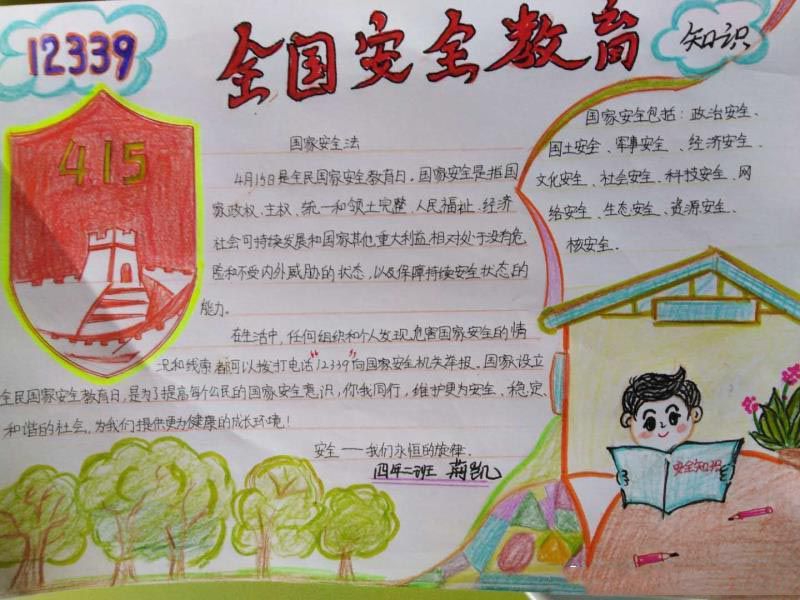 12339
全国安全教育
知识
415
国家安全法
4月15日是全民国家安全教育日。国家安全是指国
家政权、主权、统一和领土完整、人民福祉、经济
社会可持续发展和国家其他重大利益相对处于没有危
险和不受内外威胁的状态,以及保障持续安全状态的
能力。
在生活中,任何组织和个人发现危害国家安全的情
况和线索都可以拨打电话“12339”向国家安全机关举报。国家设立
全民国家安全教育日,是为了提高每个公民的国家安全意识,你我同行,维护更为安全、稳定、
和谐的社会,为我们提供更为健康的成长环境!
安全——我们永恒的旋律.
四年二班 蒋凯
国家安全包括:政治安全、
国土安全、军事安全、经济安全、
文化安全、社会安全、科技安全、网
络安全、生态安全、资源安全、
核安全.
安全知识